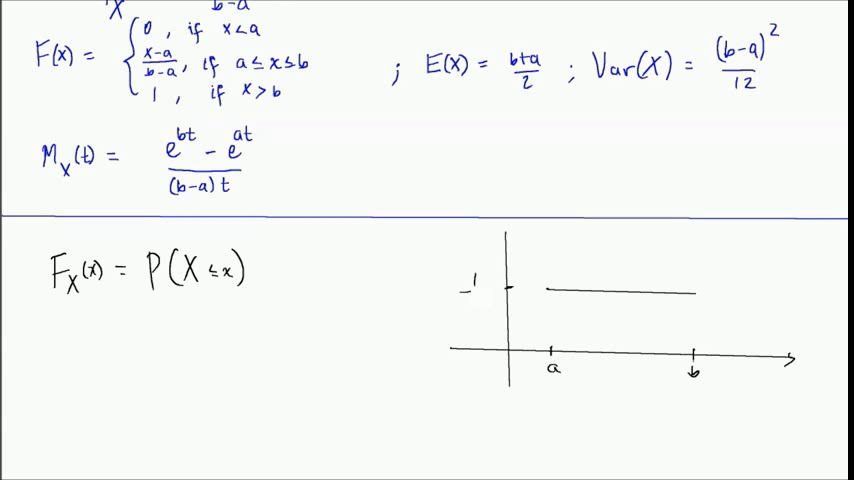 X b-a
F(x) = { 0 , if x<a
x-a/b-a , if a≤x≤b
1 , if x>b
; E(X) = b+a/2 ; Var(X) = (b-a)²/12
M_X(t) = e^bt - e^at / (b-a)t
F_X(x) = P(X ≤ x)
1
a b